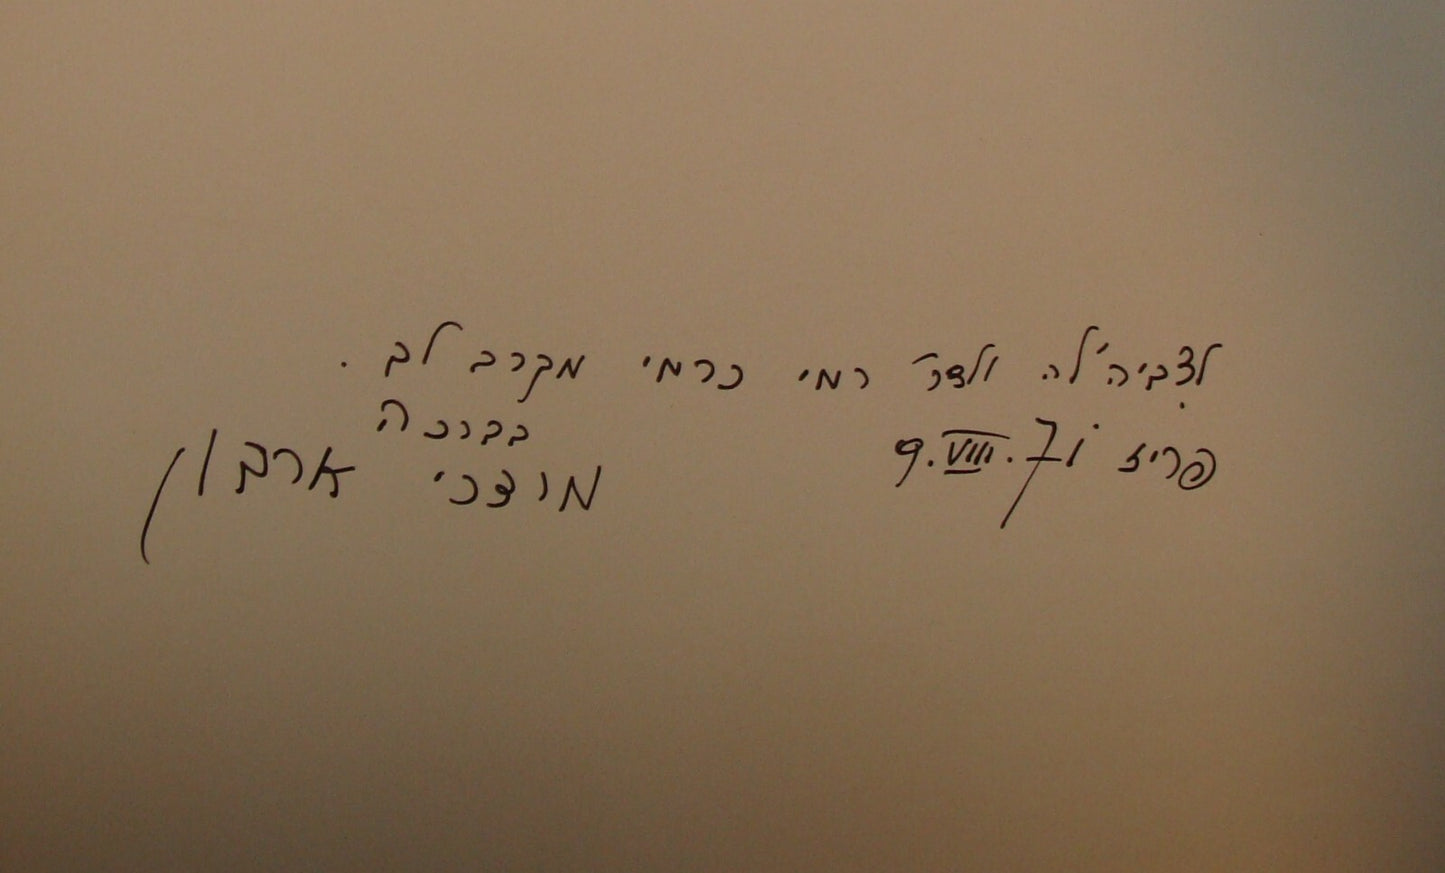 לצביה'לה ולדר' רמי כרמי מקרב לב .
בברכה
פריז 9.VIII.71
מרדכי ארדון